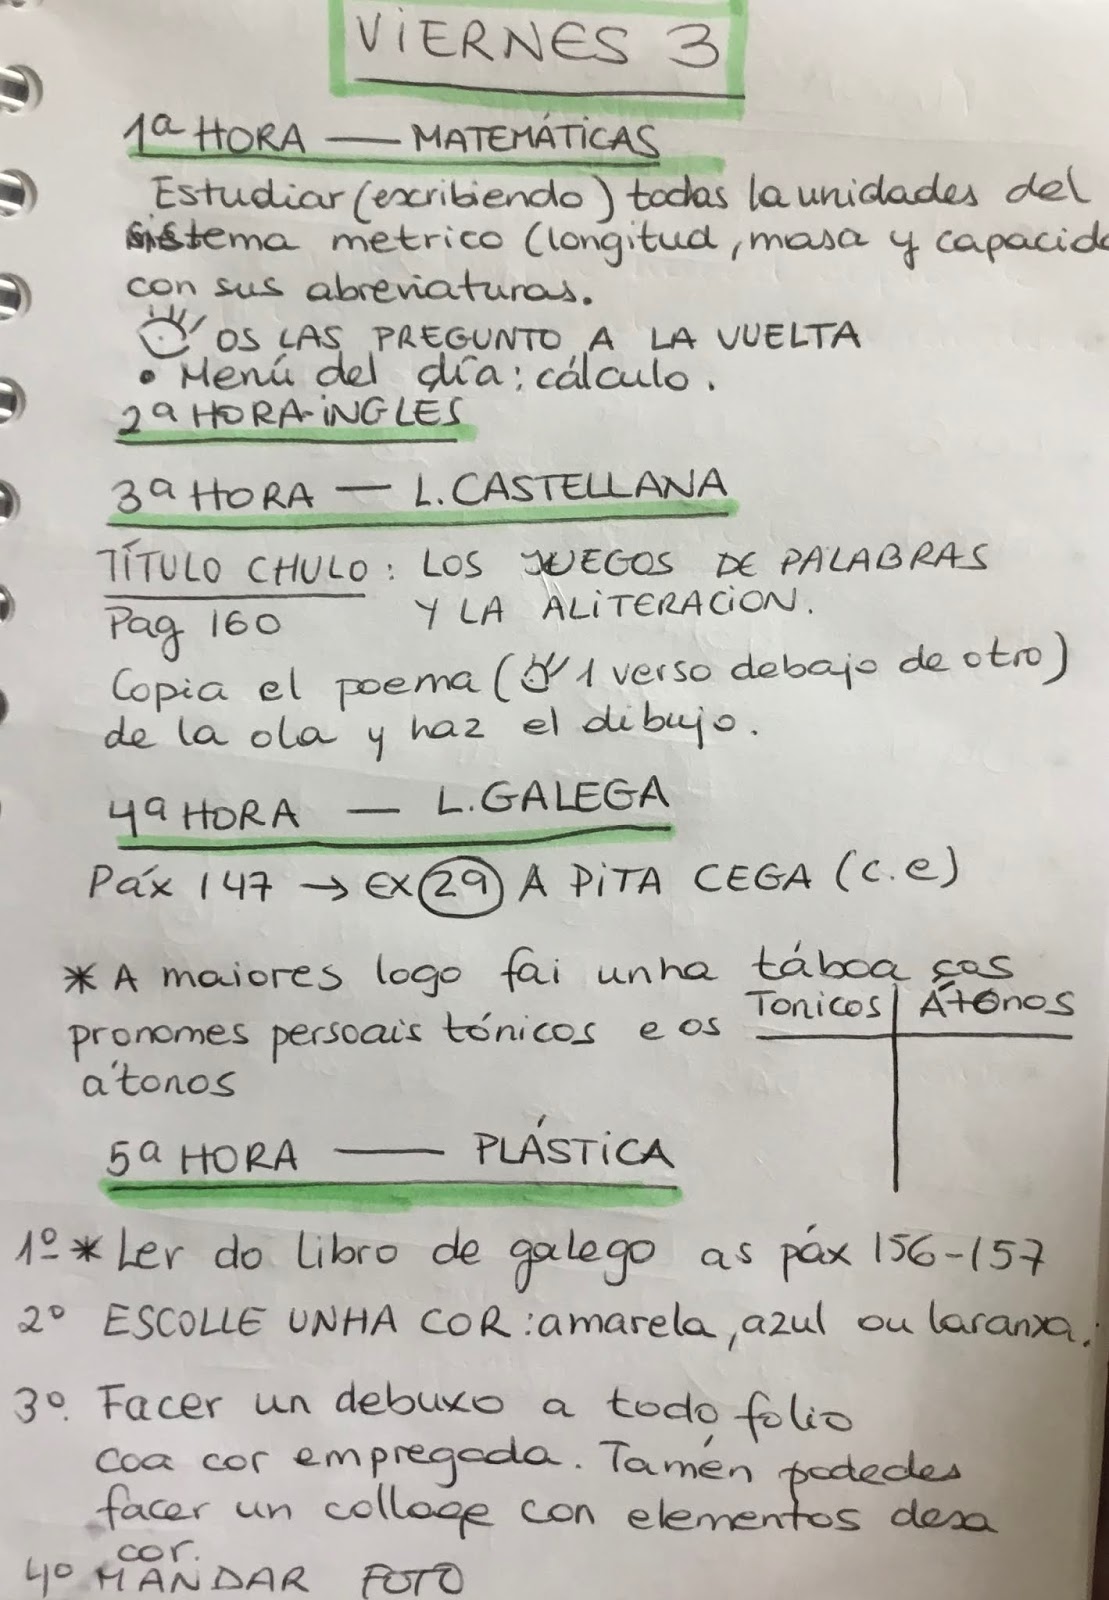 VIERNES 3
1ª HORA — MATEMÁTICAS
Estudiar (escribiendo) todas la unidades del
sistema metrico (longitud, masa y capacida
con sus abreviaturas.
OS LAS PREGUNTO A LA VUELTA
• Menú del día: cálculo.
2ª HORA-INGLES
3ª HORA — L.CASTELLANA
TÍTULO CHULO: LOS JUEGOS DE PALABRAS
Y LA ALITERACION.
Pag 160
Copia el poema ( 1 verso debajo de otro)
de la ola y haz el dibujo.
4ª HORA — L.GALEGA
Páx 147 → EX 29 A PITA CEGA (c.e)
* A maiores logo fai unha táboa cos
pronomes persoais tónicos e os
átonos
Tonicos | Átonos
5ª HORA — PLÁSTICA
1º * Ler do libro de galego as páx 156-157
2º ESCOLLE UNHA COR: amarela, azul ou laranxa.
3º. Facer un debuxo a todo folio
coa cor empregada. Tamén podedes
facer un collage con elementos desa
cor.
4º MANDAR FOTO